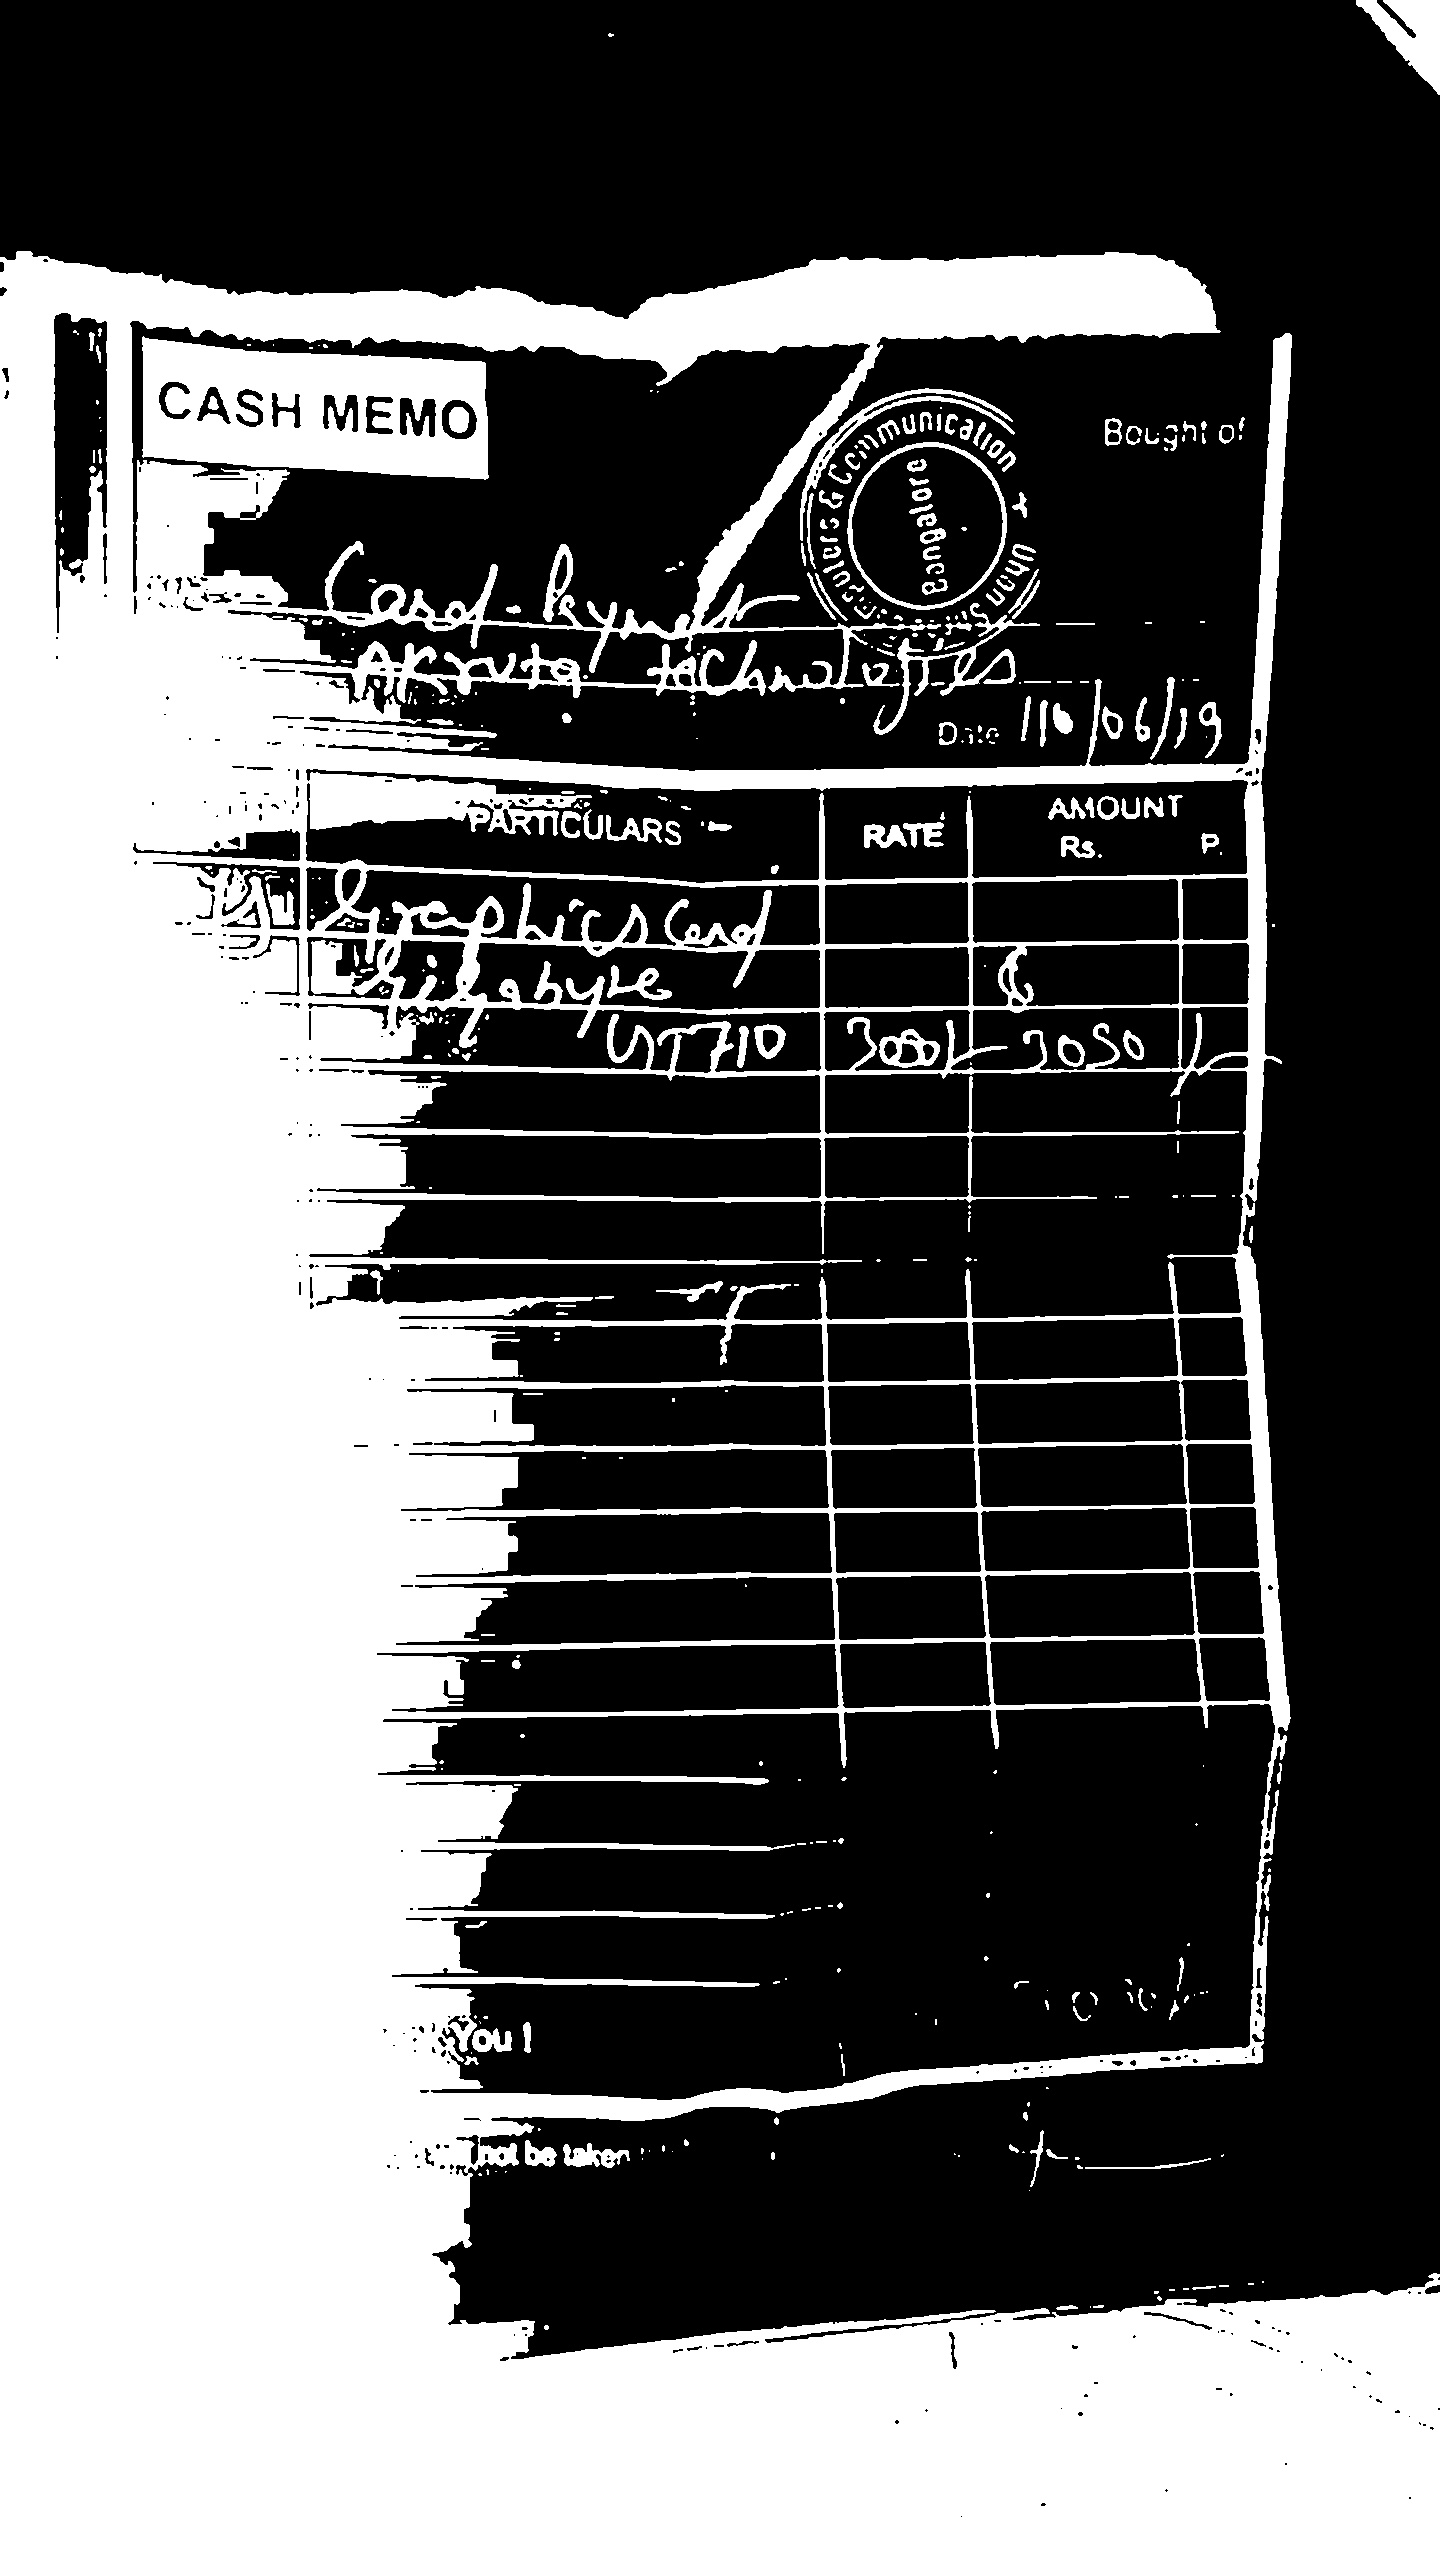 CASH MEMO
Bought of
Computers & Communication
Bangalore
Card-Payment
Akruta technologies
Date 110/06/19
PARTICULARS RATE AMOUNT
Rs. P.
Graphics Card
Gigabyte
GT710 3050/- 3050/-
You !
not be taken